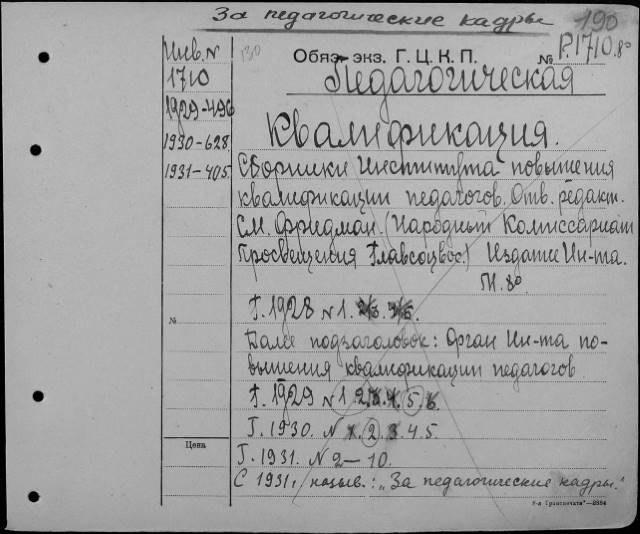 За педагогические кадры
190
Инв. N
130
Обяз. экз. Г. Ц. К. П.
№ Р.1710.8º
1710
Педагогическая
1929-496
Квалификация.
1930-628.
1931-405.
Сборники Института повышения
квалификации педагогов. Отв. редакт.
С.М. Фридман. (Народный Комиссариат
Просвещения Главсоцвос.) Издание Ин-та.
8º
Г. 1928 N 1. 2/3.
№
Далее подзаголовок: Орган Ин-та по-
вышения квалификации педагогов
Г. 1929 N 1 2. 3. 4. 5. 6.
Г. 1930. N 1. 2. 3. 4. 5.
Цена
Г. 1931. N 2—10.
С 1931г. назыв.: „За педагогические кадры."
—2884